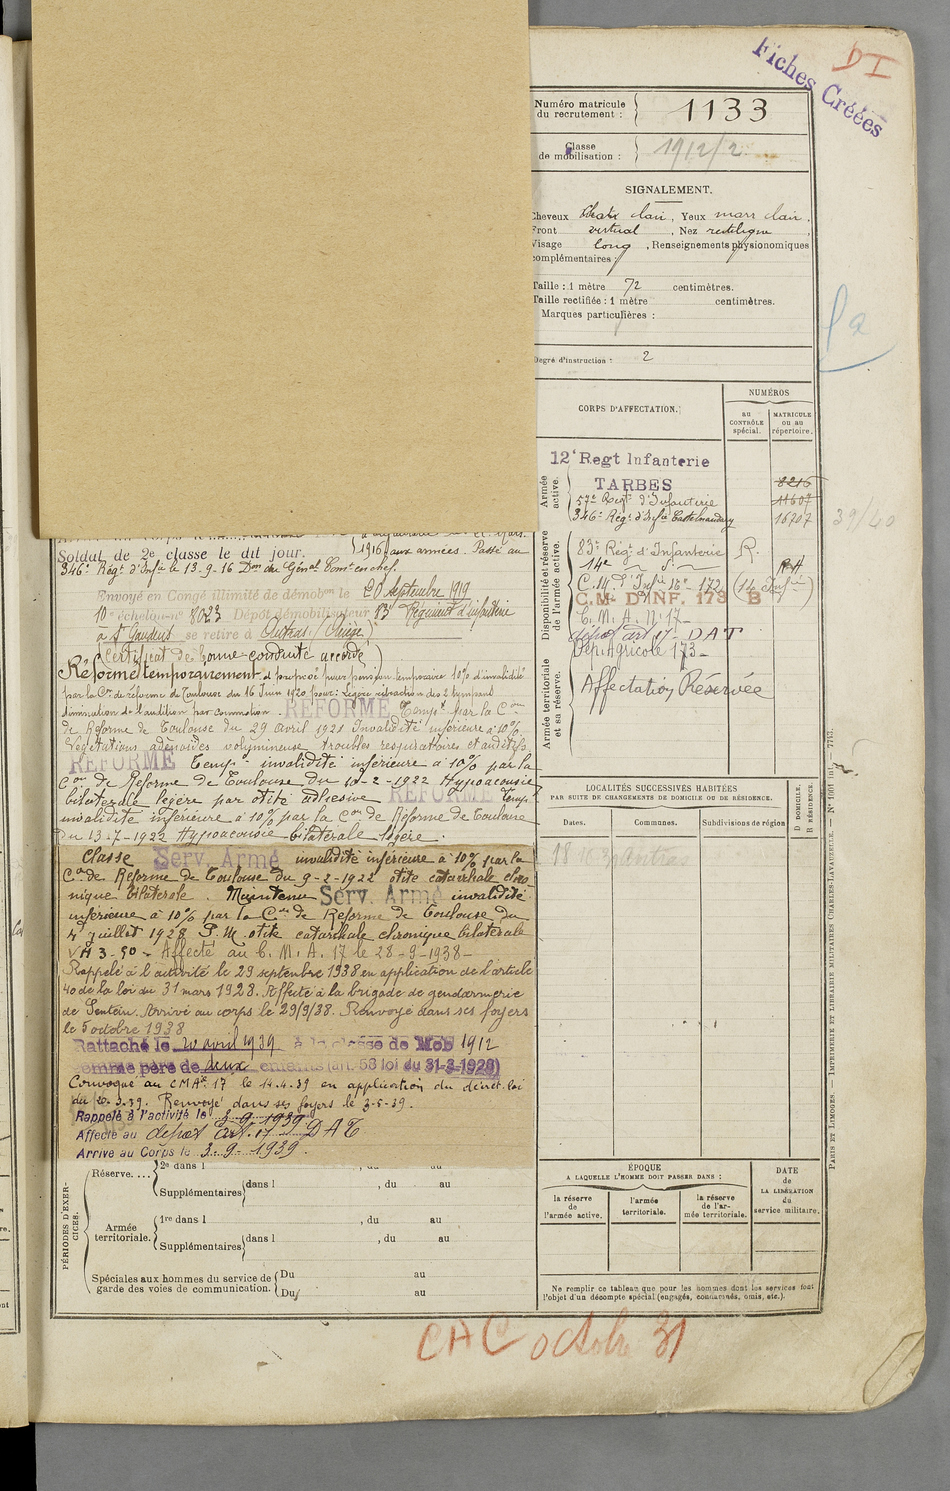 Fiches Créées
DI
Numéro matricule
du recrutement :
1133
Classe
de mobilisation :
1912/2
SIGNALEMENT.
Cheveux chatx clair, Yeux marr clair,
Front vertical, Nez rectiligne,
Visage long, Renseignements physionomiques
complémentaires :
Taille : 1 mètre 72 centimètres.
Taille rectifiée : 1 mètre centimètres.
Marques particulières :
Degré d'instruction : 2
CORPS D'AFFECTATION.
NUMÉROS
au
CONTRÔLE
spécial.
MATRICULE
ou au
répertoire.
Armée
active.
12e Regt Infanterie
TARBES
8216
57e Regt d'Infanterie
11607
346e Régt d'Infie Castelnaudary
16707
39/40
Disponibilité et réserve
de l'armée active.
83e Régt d'Infanterie R.
14e
C.M. d'Infie 16e - 172 (14 Infie)
C.M. D'INF. 173 B
C. M. A. N. 17
depot art 17 - DAT
Dep. Agricole 173
Armée territoriale
et sa réserve.
Affectation Réservée
Soldat de 2e classe le dit jour.
1916 aux armées. Passé au
346e Régt d'Infie le 13-9-16 Don du Génal Comt en chef.
Envoyé en Congé illimité de démobon le 20 Septembre 1919
10e échelon no 8023 Dépôt démobilisateur 83e Régiment d'infanterie
à St Gaudens se retire à Autras (Ariège)
(Certificat de bonne conduite accordé)
Réformé temporairement et proposé pour pension temporaire 10% d'invalidité
par la Con de réforme de Toulouse du 16 Juin 1920 pour : Légère rétraction des 2 tympans
diminution de l'audition par commotion. REFORMÉ Tempt par la Con
de Réforme de Toulouse du 29 Avril 1921 Invalidité inférieure à 10%
Végétations adénoïdes volumineuse troubles respiratoires et auditifs
REFORMÉ Tempt invalidité inférieure à 10% par la
Con de Reforme de Toulouse du 10-2-1922 Hypoacousie
bilatérale légère par otite adhésive REFORMÉ Temp.
invalidité inférieure à 10% par la Con de Réforme de Toulouse
du 13-7-1922 Hypoacousie bilatérale légère.
Classe Serv. Armé invalidité inférieure à 10% par la
Con de Reforme de Toulouse du 9-2-1922 otite catarrhale chro-
nique bilatérale. Maintenu Serv. Armé invalidité
inférieure à 10% par la Con de Reforme de Toulouse du
4 juillet 1928 P.M. otite catarrhale chronique bilatérale
VA 3-50 - Affecté au C. M. A. 17 le 28-9-1938 -
Rappelé à l'activité le 29 septembre 1938 en application de l'article
40 de la loi du 31 mars 1928. Affecté à la brigade de gendarmerie
de Sentein. Arrivé au corps le 29/9/38. Renvoyé dans ses foyers
le 5 octobre 1938
Rattaché le 20 avril 1939 à la classe de Mob 1912
comme père de deux enfants (art. 58 loi du 31-3-1928)
Convoqué au CMAt 17 le 14.4.39 en application du décret-loi
du 20.3.39. Renvoyé dans ses foyers le 3-5-39.
Rappelé à l'activité le 3.9.1939
Affecté au depot art. 17 DAT
Arrivé au Corps le 3.9.1939.
LOCALITÉS SUCCESSIVES HABITÉES
PAR SUITE DE CHANGEMENTS DE DOMICILE OU DE RÉSIDENCE.
Dates.
Communes.
Subdivisions de région
D DOMICILE.
R RÉSIDENCE.
Antras
PÉRIODES D'EXER-
CICES.
Réserve....
2e dans l , du au
Supplémentaires dans l , du au
Armée
territoriale.
1re dans l , du au
Supplémentaires dans l , du au
Spéciales aux hommes du service de
garde des voies de communication.
Du au
Du au
ÉPOQUE
A LAQUELLE L'HOMME DOIT PASSER DANS :
la réserve
de
l'armée active.
l'armée
territoriale.
la réserve
de l'ar-
mée territoriale.
DATE
de
LA LIBÉRATION
du
service militaire.
Ne remplir ce tableau que pour les hommes dont les services font
l'objet d'un décompte spécial (engagés, condamnés, omis, etc.).
PARIS ET LIMOGES. — IMPRIMERIE ET LIBRAIRIE MILITAIRES CHARLES-LAVAUZELLE. — No 1001 Int. — 7747.
CAC octobre 31